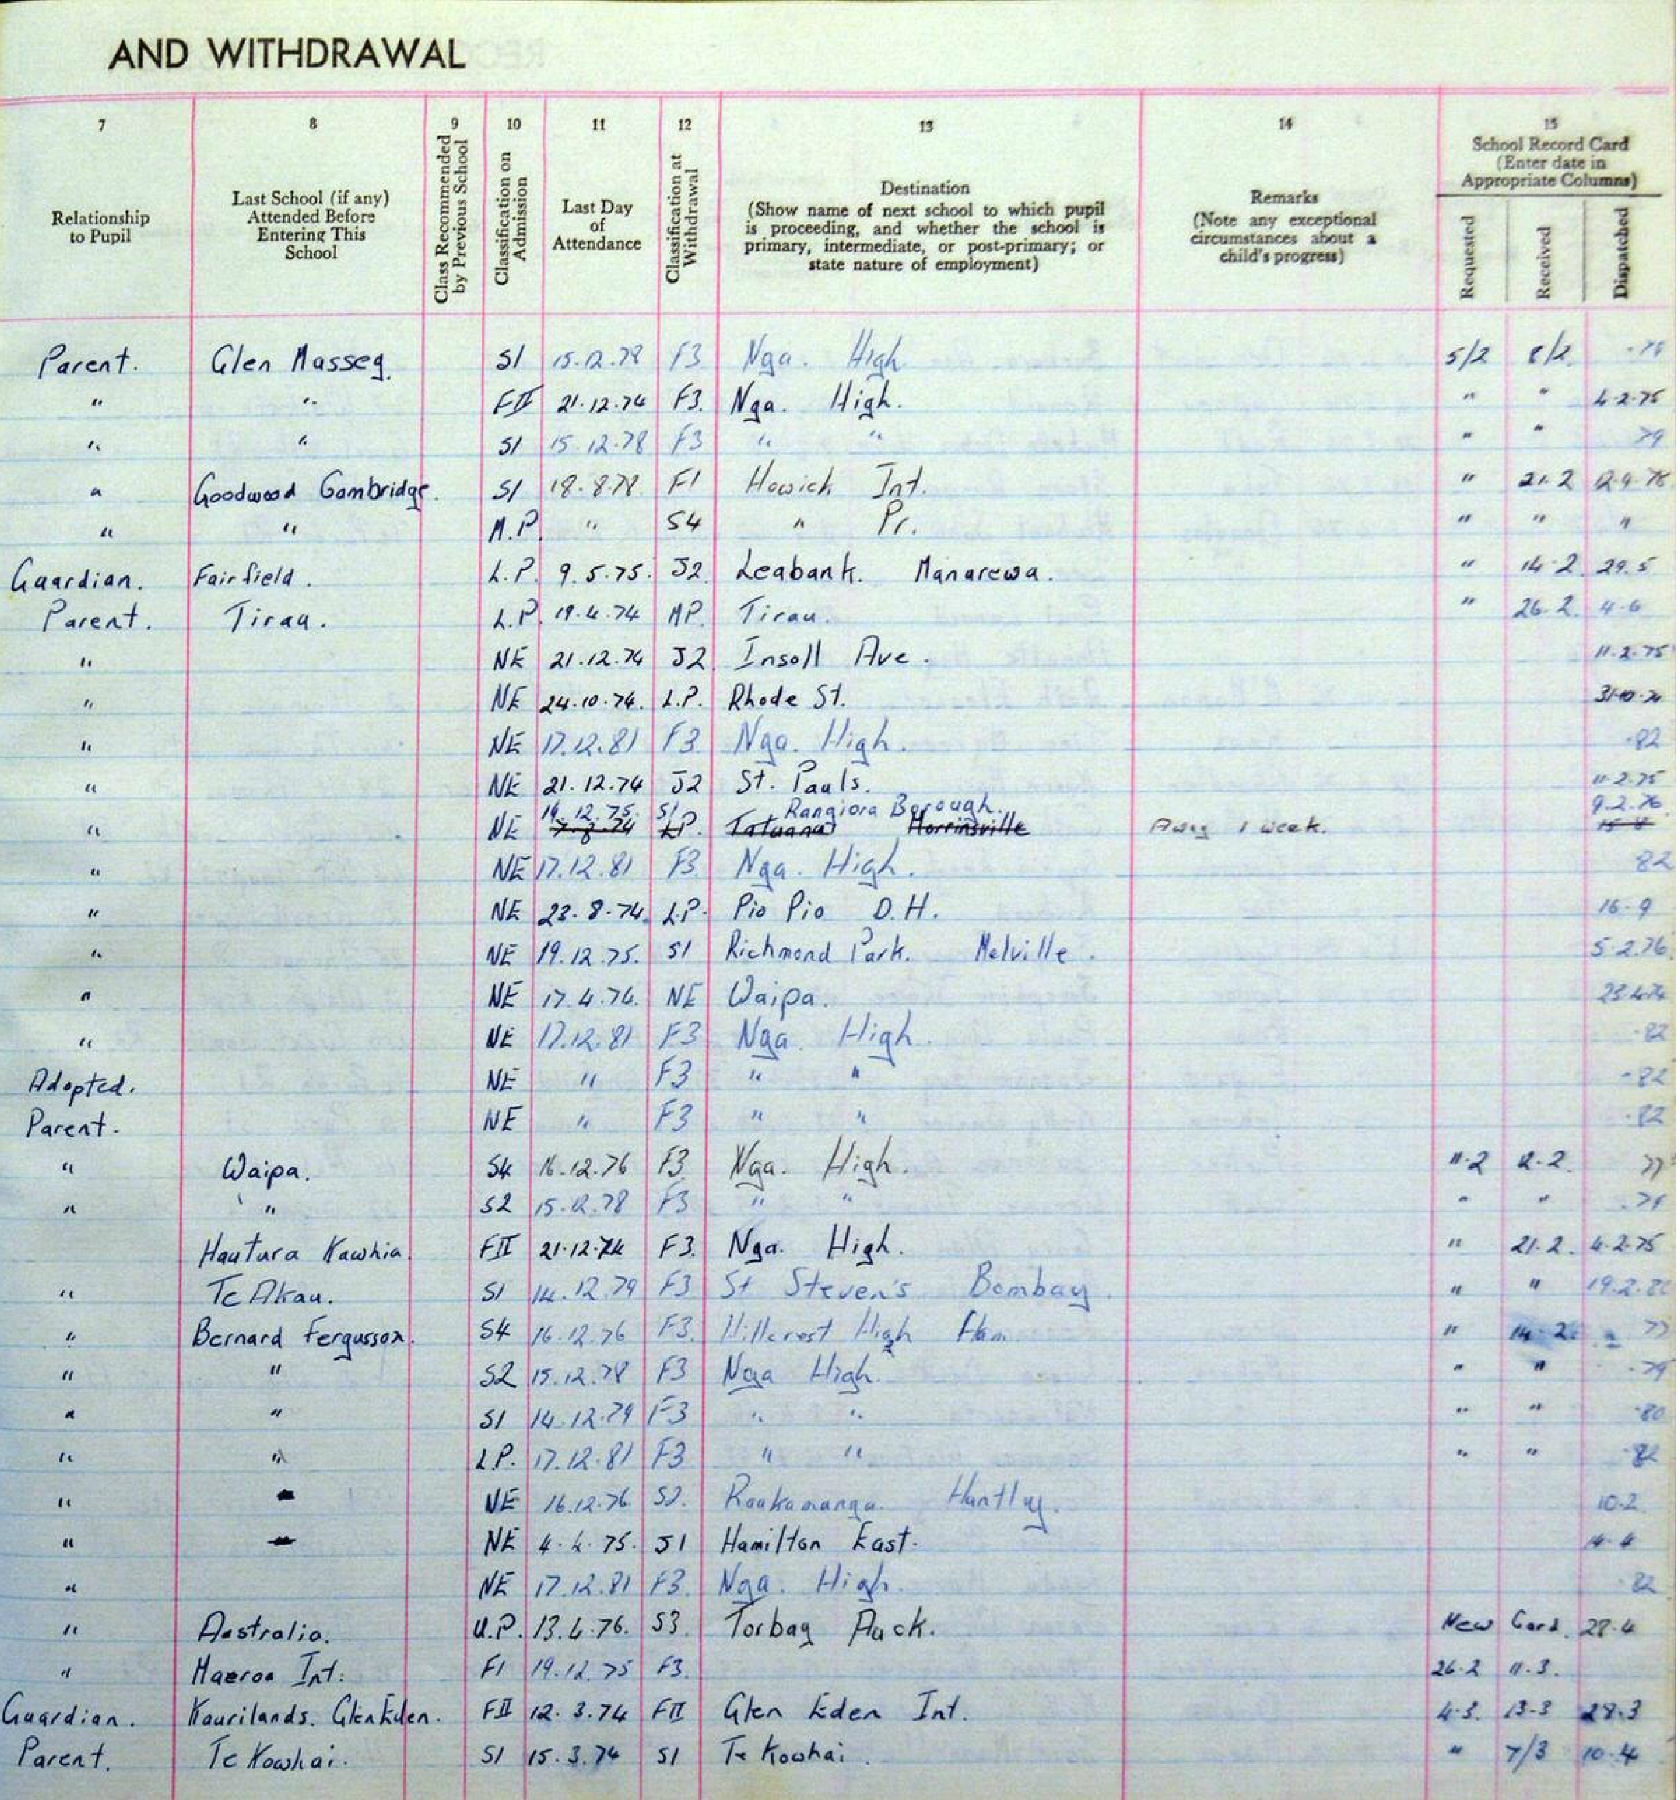 AND WITHDRAWAL
7 8 9 10 11 12 13 14 15
Relationship to Pupil
Last School (if any) Attended Before Entering This School
Class Recommended by Previous School
Classification on Admission
Last Day of Attendance
Classification at Withdrawal
Destination
(Show name of next school to which pupil is proceeding, and whether the school is primary, intermediate, or post-primary; or state nature of employment)
Remarks
(Note any exceptional circumstances about a child's progress)
School Record Card
(Enter date in Appropriate Columns)
Requested Received Dispatched
Parent. Glen Massey. S1 15.12.78 F3 Nga. High 5/2 8/2
" " FII 21.12.74 F3. Nga. High. " " 4.2.75
" " S1 15.12.78 F3 " " " " 79
" Goodwood Cambridge. S1 18.8.78 F1 Howick Int. " 21.2 12.9.78
" " M.P. " S4 " Pr. " " "
Guardian. Fairfield. L.P. 9.5.75. J2 Leabank. Manarewa. " 14.2 29.5
Parent. Tirau. L.P. 19.4.74 MP. Tirau. " 26.2. 4.6
" NE 21.12.74 J2 Insoll Ave. 11.2.75
" NE 24.10.74. L.P. Rhode St. 31.10.74
" NE 17.12.81 F3 Nga. High. 82
" NE 21.12.74 J2 St. Pauls. 11.2.75
19.12.75. S1 Rangiora Borough. 9.2.76
" NE 7.8.74 L.P. Tatuanui Morrinsville Away 1 week. 15.8
" NE 17.12.81 F3 Nga. High. 82
" NE 23.8.74. L.P. Pio Pio D.H. 16.9
" NE 19.12.75. S1 Richmond Park. Melville. 5.2.76
" NE 17.4.74. NE Waipa. 23.4.74
" NE 17.12.81 F3 Nga High. 82
Adopted. NE " F3 " " 82
Parent. NE " F3 " " 82
" Waipa. S4 16.12.76 F3 Nga. High. 11.2 12.2. 77
" " S2 15.12.78 F3 " " " " 79
Hautura Kawhia. FII 21.12.74 F3. Nga. High. " 21.2. 4.2.75
" Te Akau. S1 14.12.79 F3 St Steven's Bombay. " " 19.2.80
" Bernard Fergusson. S4 16.12.76 F3. Hillcrest High Ham " 14.2. 77
" " S2 15.12.78 F3 Nga High. " " 79
" " S1 14.12.79 F3 " " " " 80
" " L.P. 17.12.81 F3 " " " " 82
" NE 16.12.76 S2. Raakamanga. Huntley. 10.2
" NE 4.4.75. S1 Hamilton East. 14.4
" NE 17.12.81 F3. Nga. High. 82
" Australia. U.P. 13.4.76. S3 Torbay Auck. New Card. 28.4
" Maeroa Int. F1 19.12.75 F3. 26.2 11.3.
Guardian. Kaurilands. Glen Eden. FII 12.3.74 FII Glen Eden Int. 4.3. 13.3 28.3
Parent. Te Kowhai. S1 15.3.74 S1 Te Kowhai. " 7/3 10.4